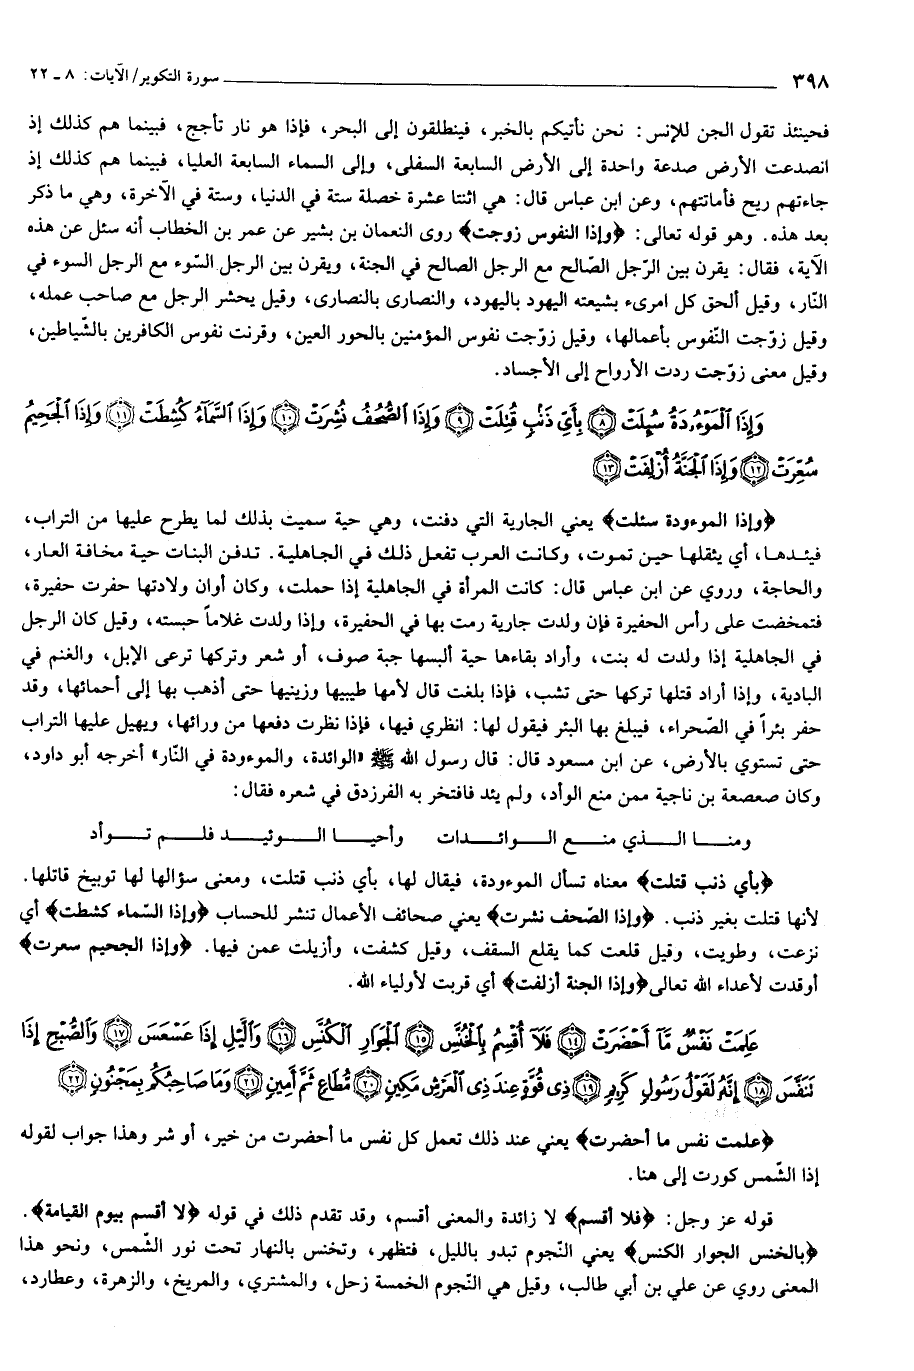 ٣٩٨ سورة التكوير/ الآيات: ٨ ـ ٢٢
فحينئذ تقول الجن للإنس: نحن نأتيكم بالخبر، فينطلقون إلى البحر، فإذا هو نار تأجج، فبينما هم كذلك إذ
انصدعت الأرض صدعة واحدة إلى الأرض السابعة السفلى، وإلى السماء السابعة العليا، فبينما هم كذلك إذ
جاءتهم ريح فأماتتهم، وعن ابن عباس قال: هي اثنتا عشرة خصلة ستة في الدنيا، وستة في الآخرة، وهي ما ذكر
بعد هذه. وهو قوله تعالى: ﴿وإذا النفوس زوجت﴾ روى النعمان بن بشير عن عمر بن الخطاب أنه سئل عن هذه
الآية، فقال: يقرن بين الرّجل الصّالح مع الرجل الصالح في الجنة، ويقرن بين الرجل السّوء مع الرجل السوء في
النّار، وقيل ألحق كل امرىء بشيعته اليهود باليهود، والنصارى بالنصارى، وقيل يحشر الرجل مع صاحب عمله،
وقيل زوّجت النّفوس بأعمالها، وقيل زوّجت نفوس المؤمنين بالحور العين، وقرنت نفوس الكافرين بالشّياطين،
وقيل معنى زوّجت ردت الأرواح إلى الأجساد.
وَإِذَا الْمَوْءُۥدَةُ سُئِلَتْ ﴿٨﴾ بِأَيِّ ذَنْبٍ قُتِلَتْ ﴿٩﴾ وَإِذَا الصُّحُفُ نُشِرَتْ ﴿١٠﴾ وَإِذَا السَّمَآءُ كُشِطَتْ ﴿١١﴾ وَإِذَا الْجَحِيمُ
سُعِّرَتْ ﴿١٢﴾ وَإِذَا الْجَنَّةُ أُزْلِفَتْ ﴿١٣﴾
﴿وإذا الموءودة سئلت﴾ يعني الجارية التي دفنت، وهي حية سميت بذلك لما يطرح عليها من التراب،
فيئدها، أي يثقلها حين تموت، وكانت العرب تفعل ذلك في الجاهلية. تدفن البنات حية مخافة العار،
والحاجة، وروي عن ابن عباس قال: كانت المرأة في الجاهلية إذا حملت، وكان أوان ولادتها حفرت حفيرة،
فتمخضت على رأس الحفيرة فإن ولدت جارية رمت بها في الحفيرة، وإذا ولدت غلاماً حبسته، وقيل كان الرجل
في الجاهلية إذا ولدت له بنت، وأراد بقاءها حية ألبسها جبة صوف، أو شعر وتركها ترعى الإبل، والغنم في
البادية، وإذا أراد قتلها تركها حتى تشب، فإذا بلغت قال لأمها طيبيها وزينيها حتى أذهب بها إلى أحمائها، وقد
حفر بئراً في الصّحراء، فيبلغ بها البئر فيقول لها: انظري فيها، فإذا نظرت دفعها من ورائها، ويهيل عليها التراب
حتى تستوي بالأرض، عن ابن مسعود قال: قال رسول الله ﷺ «الوائدة، والموءودة في النّار» أخرجه أبو داود،
وكان صعصعة بن ناجية ممن منع الوأد، ولم يئد فافتخر به الفرزدق في شعره فقال:
ومنا الذي منع الوائدات وأحيا الوئيد فلم توأد
﴿بأي ذنب قتلت﴾ معناه تسأل الموءودة، فيقال لها، بأي ذنب قتلت، ومعنى سؤالها لها توبيخ قاتلها.
لأنها قتلت بغير ذنب. ﴿وإذا الصّحف نشرت﴾ يعني صحائف الأعمال تنشر للحساب ﴿وإذا السّماء كشطت﴾ أي
نزعت، وطويت، وقيل قلعت كما يقلع السقف، وقيل كشفت، وأزيلت عمن فيها. ﴿وإذا الجحيم سعرت﴾
أوقدت لأعداء الله تعالى﴿وإذا الجنة أزلفت﴾ أي قربت لأولياء الله.
عَلِمَتْ نَفْسٌ مَّآ أَحْضَرَتْ ﴿١٤﴾ فَلَآ أُقْسِمُ بِالْخُنَّسِ ﴿١٥﴾ الْجَوَارِ الْكُنَّسِ ﴿١٦﴾ وَالَّيْلِ إِذَا عَسْعَسَ ﴿١٧﴾ وَالصُّبْحِ إِذَا
تَنَفَّسَ ﴿١٨﴾ إِنَّهُ لَقَوْلُ رَسُولٍ كَرِيمٍ ﴿١٩﴾ ذِى قُوَّةٍ عِندَ ذِى الْعَرْشِ مَكِينٍ ﴿٢٠﴾ مُّطَاعٍ ثَمَّ أَمِينٍ ﴿٢١﴾ وَمَا صَاحِبُكُم بِمَجْنُونٍ ﴿٢٢﴾
﴿علمت نفس ما أحضرت﴾ يعني عند ذلك تعمل كل نفس ما أحضرت من خير، أو شر وهذا جواب لقوله
إذا الشّمس كورت إلى هنا.
قوله عز وجل: ﴿فلا أقسم﴾ لا زائدة والمعنى أقسم، وقد تقدم ذلك في قوله ﴿لا أقسم بيوم القيامة﴾.
﴿بالخنس الجوار الكنس﴾ يعني النّجوم تبدو بالليل، فتظهر، وتخنس بالنهار تحت نور الشّمس، ونحو هذا
المعنى روي عن علي بن أبي طالب، وقيل هي النّجوم الخمسة زحل، والمشتري، والمريخ، والزهرة، وعطارد،